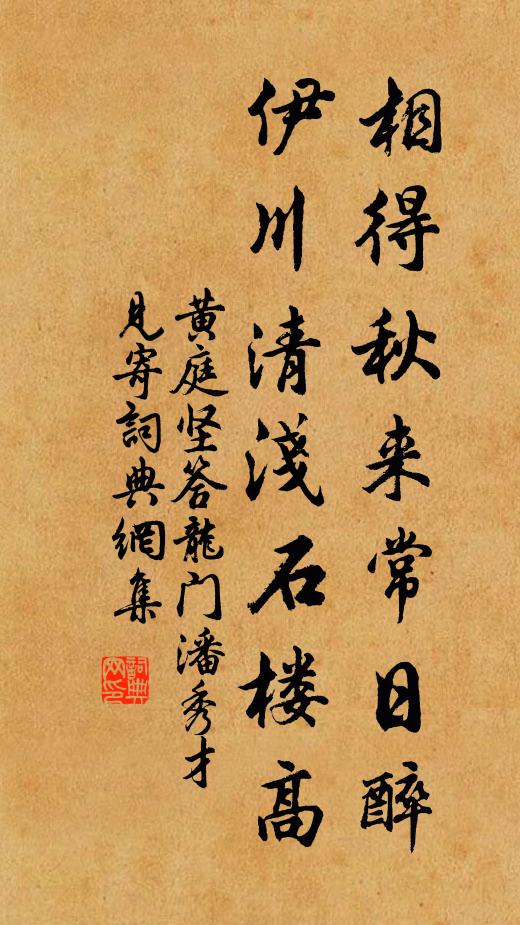 相得秋来常日醉
伊川清淺石楼高
黄庭坚答龍门潘秀才
見寄詞典網集
詞典网印